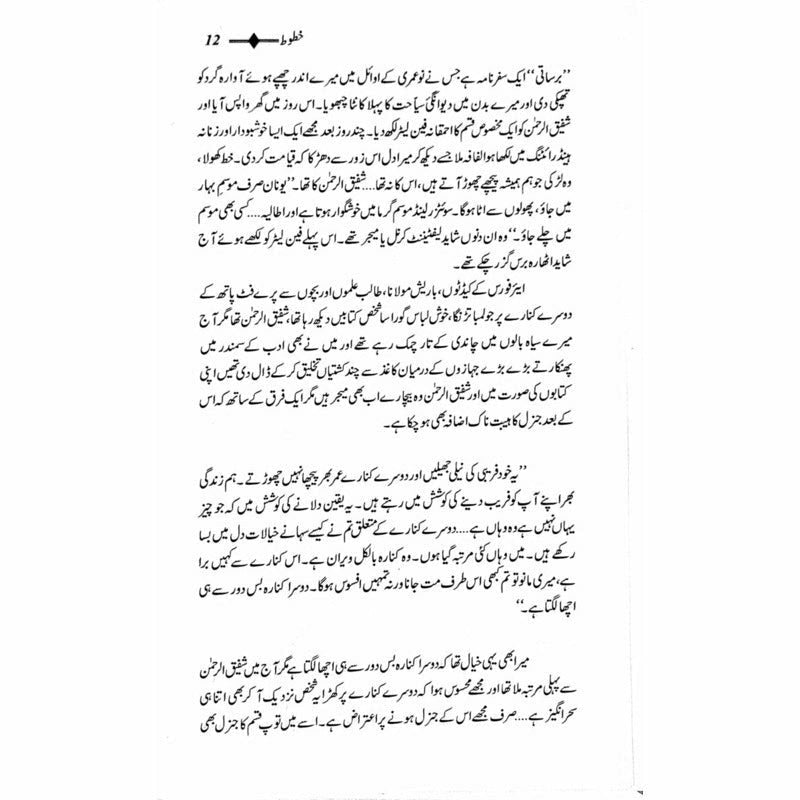 خطوط 12
”برساتی“ ایک سفر نامہ ہے جس نے نوعمری کے اوائل میں میرے اندر چھپے ہوئے آوارہ گرد کو
تھپکی دی اور میرے بدن میں دیوانگیٔ سیاحت کا پہلا کانٹا چبھویا۔ اس روز میں گھر واپس آیا اور
شفیق الرحمٰن کو ایک مخصوص قسم کا احمقانہ فین لیٹر لکھ دیا۔ چند روز بعد مجھے ایک ایسا خوشبودار اور زنانہ
ہینڈ رائٹنگ میں لکھا ہوا لفافہ ملا جسے دیکھ کر میرا دل اس زور سے دھڑکا کہ قیامت کر دی۔ خط کھولا،
وہ لڑکی جو ہم ہمیشہ پیچھے چھوڑ آتے ہیں، اس کا نہ تھا.... شفیق الرحمٰن کا تھا۔ ”یونان صرف موسمِ بہار
میں جاؤ، پھولوں سے اٹا ہوگا۔ سوئٹزرلینڈ موسم گرما میں خوشگوار ہوتا ہے اور اطالیہ.... کسی بھی موسم
میں چلے جاؤ۔“ وہ ان دنوں شاید لیفٹیننٹ کرنل یا میجر تھے۔ اس پہلے فین لیٹر کو لکھے ہوئے آج
شاید اٹھارہ برس گزر چکے تھے۔
ایئر فورس کے کیڈٹوں، باریش مولانا، طالب علموں اور بچوں سے پرے فٹ پاتھ کے
دوسرے کنارے پر جو لمبا تڑنگا، خوش لباس گورا سا شخص کتابیں دیکھ رہا تھا، شفیق الرحمٰن تھا مگر آج
میرے سیاہ بالوں میں چاندی کے تار چمک رہے تھے اور میں نے بھی ادب کے سمندر میں
پھنکارتے بڑے بڑے جہازوں کے درمیان کاغذ سے چند کشتیاں تخلیق کر کے ڈال دی تھیں اپنی
کتابوں کی صورت میں اور شفیق الرحمٰن وہ بیچارے اب بھی میجر ہیں مگر ایک فرق کے ساتھ کہ اس
کے بعد جنرل کا ہیبت ناک اضافہ بھی ہو چکا ہے۔
”یہ خود فریبی کی نیلی جھیلیں اور دوسرے کنارے عمر بھر پیچھا نہیں چھوڑتے۔ ہم زندگی
بھر اپنے آپ کو فریب دینے کی کوشش میں رہتے ہیں۔ یہ یقین دلانے کی کوشش میں کہ جو چیز
یہاں نہیں ہے وہ وہاں ہے.... دوسرے کنارے کے متعلق تم نے کیسے سہانے خیالات دل میں بسا
رکھے ہیں۔ میں وہاں کئی مرتبہ گیا ہوں۔ وہ کنارہ بالکل ویران ہے۔ اس کنارے سے کہیں برا
ہے، میری مانو تو تم کبھی اس طرف مت جانا ورنہ تمہیں افسوس ہوگا۔ دوسرا کنارہ بس دور سے ہی
اچھا لگتا ہے۔“
میرا بھی یہی خیال تھا کہ دوسرا کنارہ بس دور سے ہی اچھا لگتا ہے مگر آج میں شفیق الرحمٰن
سے پہلی مرتبہ ملا تھا اور مجھے محسوس ہوا کہ دوسرے کنارے پر کھڑا یہ شخص نزدیک آ کر بھی اتنا ہی
سحر انگیز ہے.... صرف مجھے اس کے جنرل ہونے پر اعتراض ہے۔ اسے میں توپ قسم کا جنرل بھی